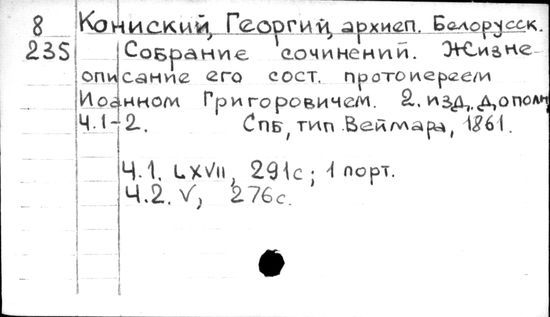 8 Кониский, Георгий, архиеп. Белорусск.
235 Собрание сочинений. Жизне-
описание его сост. протоиереем
Иоанном Григоровичем. 2. изд. дополн.
Ч.1-2. Спб, тип. Веймара, 1861.
Ч.1. LXVII, 291с; 1 порт.
Ч.2. V, 276с.